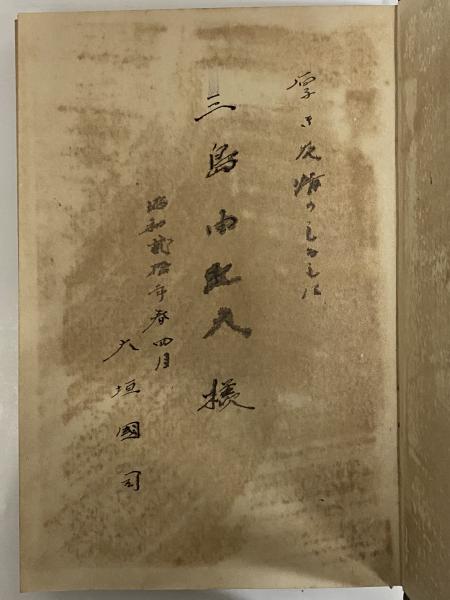 厚き友情のしるしに
三島由紀夫様
昭和貳拾年春四月
大垣國司